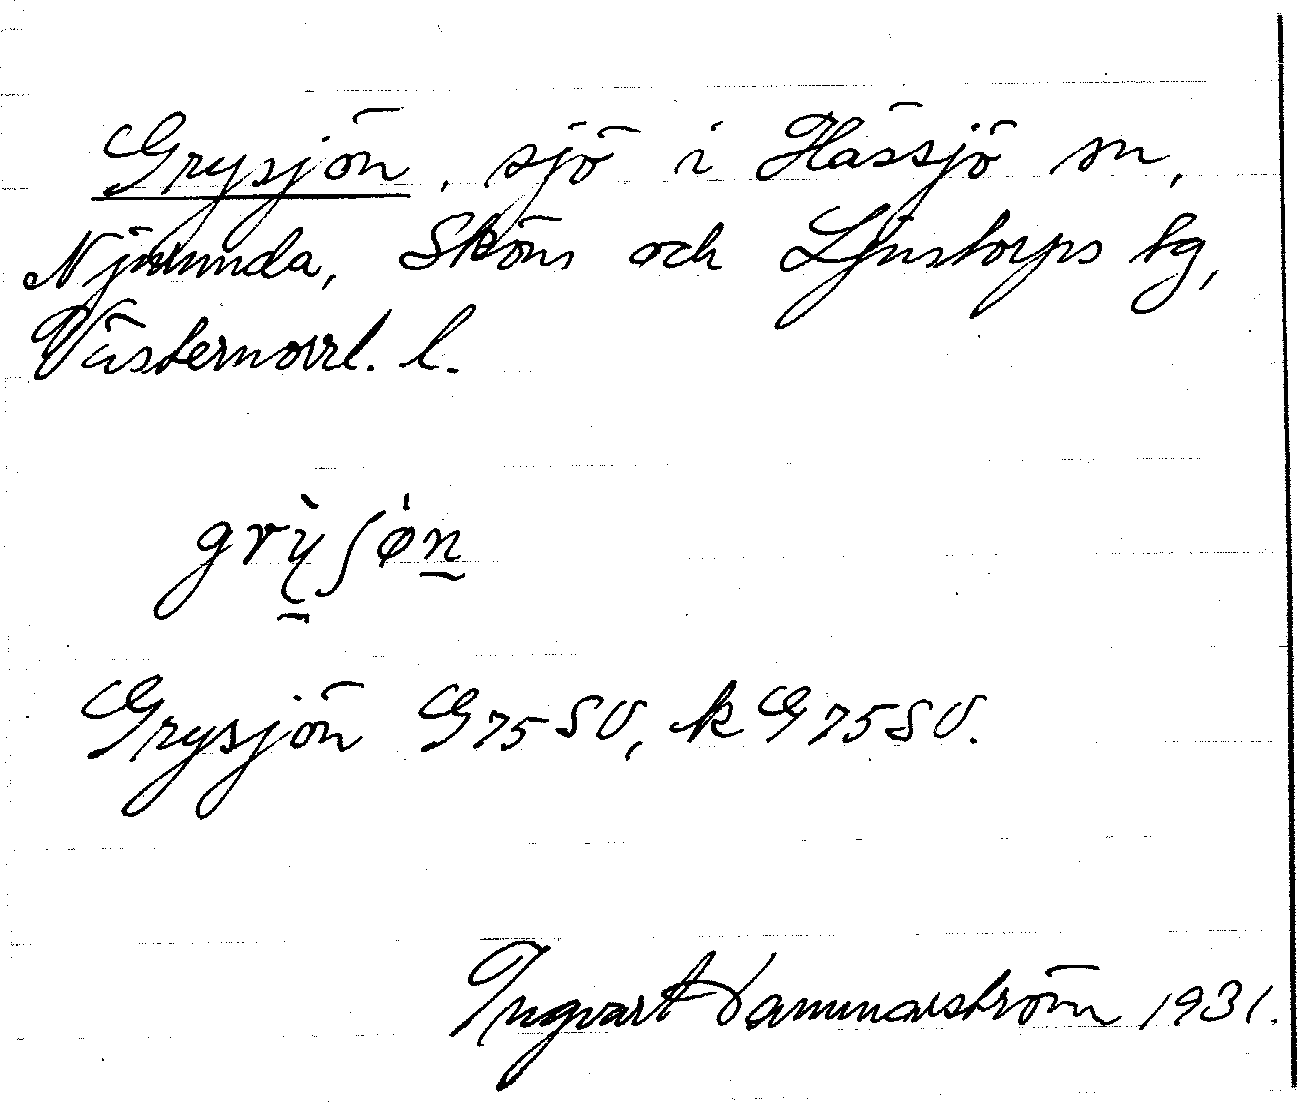 Grysjön, sjö i Hässjö sn,
Njurunda, Sköns och Ljustorps tg,
Västernorrl. l.
grỳʃøn
Grysjön G75SV, k G75SV.
Ingvart 1931.